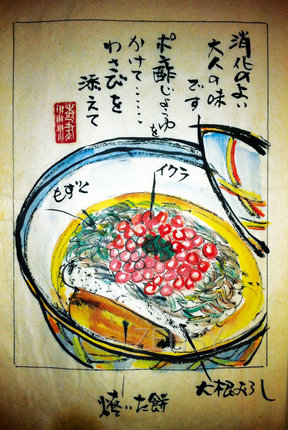 消化のよい
大人の味
です
ポン酢じょうゆを
かけて……
わさびを
添えて
イクラ
もずく
大根おろし
焼いた餅